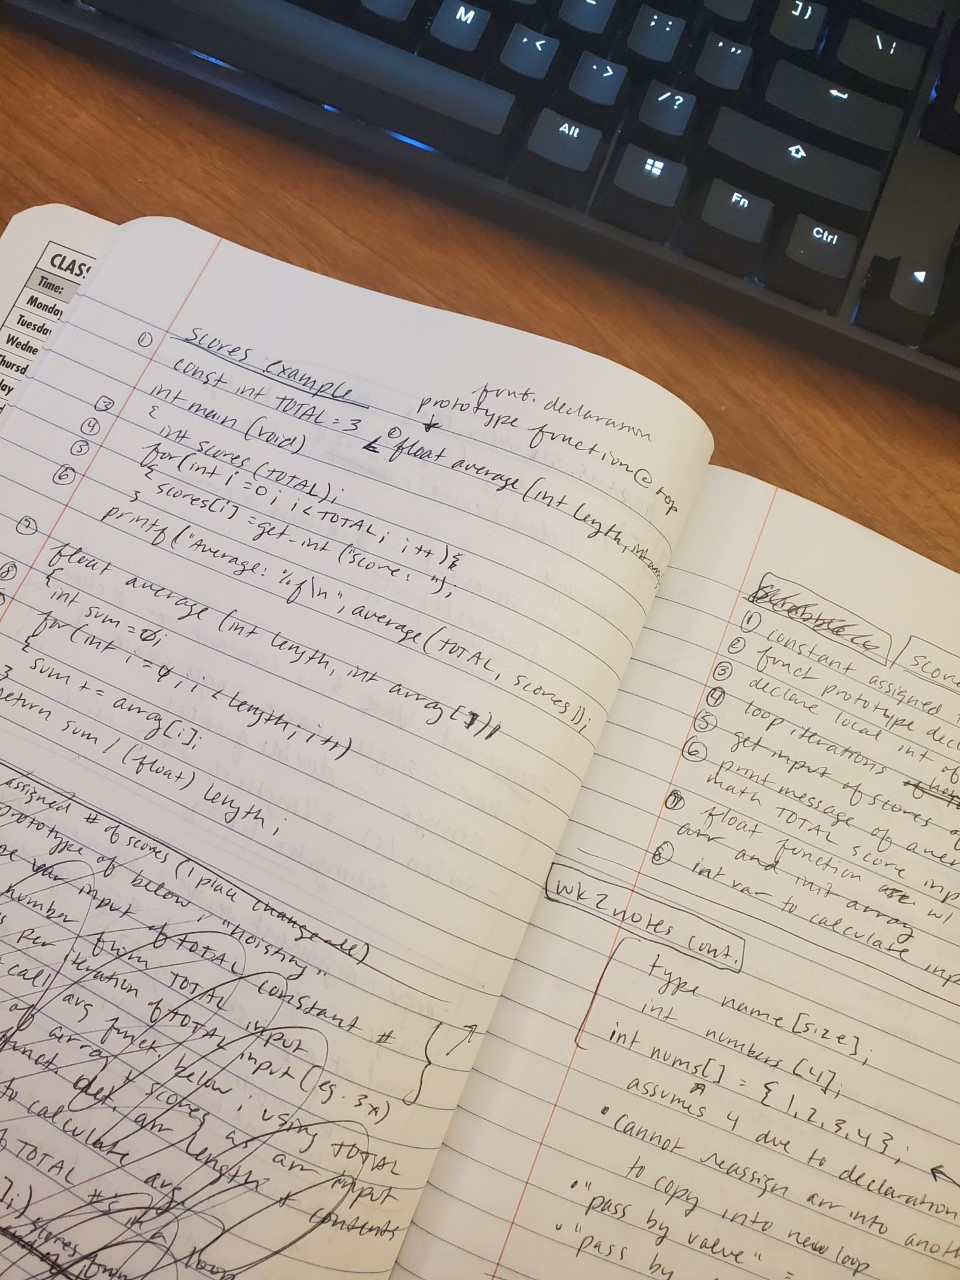 M
, <
. >
; :
' "
/ ?
] }
\ |
Alt
Fn
Ctrl
CLASS
Time:
Monday
Tuesday
Wedne
Thursd
ay
① Scores example
const int TOTAL = 3
funt. declaration
prototype function @ top
② float average (int length, int
③ int main (void)
{
④ int scores (TOTAL);
⑤ for (int i = 0; i < TOTAL; i++) {
{
⑥ scores[i] = get_int ("score: ");
}
printf ("Average: %f\n", average (TOTAL, scores));
⑦ float average (int length, int array [])
{
⑧ int sum = 0;
for (int i = 0; i < length; i++)
{
sum += array[i];
}
return sum / (float) length;
assigned # of scores (1 place change all)
prototype of below; "hoisting"
var input of TOTAL constant #
number from TOTAL input
per iteration of TOTAL input (eg. 3x)
call avg funct. below; using TOTAL
of array & scores as arr input
funct. def. arr length & contents
to calculate avg
TOTAL #s in a loop
scores from
score
① constant assigned
② funct prototype decl
③ declare local int of
④ loop iterations
⑤ get input of scores
⑥ print message of aver
math TOTAL score inp
⑦ float function w/
arr and init array
⑧ int var to calculate inp
wk 2 notes cont.
type name [size];
int numbers [4];
int nums[] = { 1, 2, 3, 4 };
assumes 4 due to declaration
• Cannot reassign arr into anoth
to copy into new loop
• "pass by value" =
• "pass by